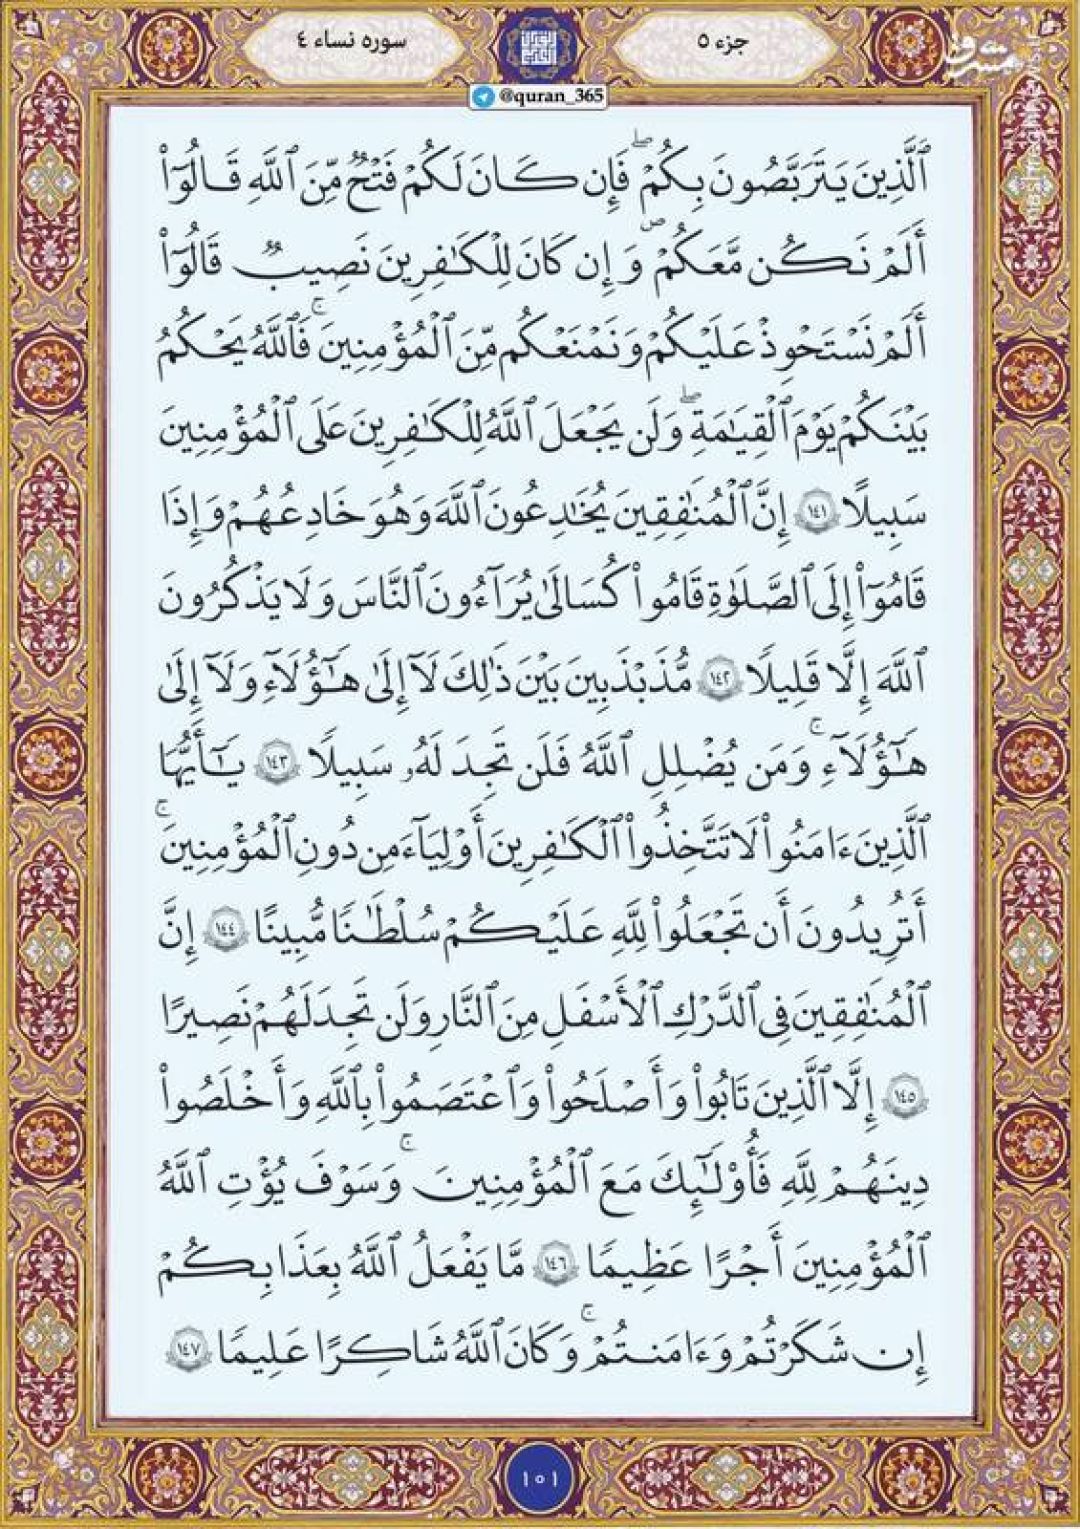 جزء ٥
سوره نساء ٤
@quran_365
ٱلَّذِينَ يَتَرَبَّصُونَ بِكُمْ ۖ فَإِن كَانَ لَكُمْ فَتْحٌ مِّنَ ٱللَّهِ قَالُوٓا۟
أَلَمْ نَكُن مَّعَكُمْ ۖ وَإِن كَانَ لِلْكَـٰفِرِينَ نَصِيبٌ قَالُوٓا۟
أَلَمْ نَسْتَحْوِذْ عَلَيْكُمْ وَنَمْنَعْكُم مِّنَ ٱلْمُؤْمِنِينَ ۚ فَٱللَّهُ يَحْكُمُ
بَيْنَكُمْ يَوْمَ ٱلْقِيَـٰمَةِ ۗ وَلَن يَجْعَلَ ٱللَّهُ لِلْكَـٰفِرِينَ عَلَى ٱلْمُؤْمِنِينَ
سَبِيلًا ١٤١ إِنَّ ٱلْمُنَـٰفِقِينَ يُخَـٰدِعُونَ ٱللَّهَ وَهُوَ خَادِعُهُمْ وَإِذَا
قَامُوٓا۟ إِلَى ٱلصَّلَوٰةِ قَامُوا۟ كُسَالَىٰ يُرَآءُونَ ٱلنَّاسَ وَلَا يَذْكُرُونَ
ٱللَّهَ إِلَّا قَلِيلًا ١٤٢ مُّذَبْذَبِينَ بَيْنَ ذَٰلِكَ لَآ إِلَىٰ هَـٰٓؤُلَآءِ وَلَآ إِلَىٰ
هَـٰٓؤُلَآءِ ۚ وَمَن يُضْلِلِ ٱللَّهُ فَلَن تَجِدَ لَهُۥ سَبِيلًا ١٤٣ يَـٰٓأَيُّهَا
ٱلَّذِينَ ءَامَنُوا۟ لَا تَتَّخِذُوا۟ ٱلْكَـٰفِرِينَ أَوْلِيَآءَ مِن دُونِ ٱلْمُؤْمِنِينَ ۚ
أَتُرِيدُونَ أَن تَجْعَلُوا۟ لِلَّهِ عَلَيْكُمْ سُلْطَـٰنًا مُّبِينًا ١٤٤ إِنَّ
ٱلْمُنَـٰفِقِينَ فِى ٱلدَّرْكِ ٱلْأَسْفَلِ مِنَ ٱلنَّارِ وَلَن تَجِدَ لَهُمْ نَصِيرًا
١٤٥ إِلَّا ٱلَّذِينَ تَابُوا۟ وَأَصْلَحُوا۟ وَٱعْتَصَمُوا۟ بِٱللَّهِ وَأَخْلَصُوا۟
دِينَهُمْ لِلَّهِ فَأُو۟لَـٰٓئِكَ مَعَ ٱلْمُؤْمِنِينَ ۚ وَسَوْفَ يُؤْتِ ٱللَّهُ
ٱلْمُؤْمِنِينَ أَجْرًا عَظِيمًا ١٤٦ مَّا يَفْعَلُ ٱللَّهُ بِعَذَابِكُمْ
إِن شَكَرْتُمْ وَءَامَنتُمْ ۚ وَكَانَ ٱللَّهُ شَاكِرًا عَلِيمًا ١٤٧
١٥١